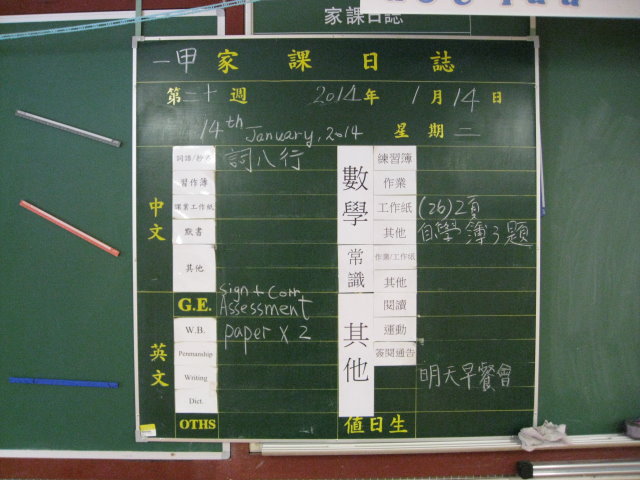 家課日誌
一甲 家 課 日 誌
第二十週 2014年 1月14日
14th January, 2014 星期二
中文
習作簿
課業工作紙
默書
其他
詞八行
英文
G.E.
W.B.
Penmanship
Writing
Dict.
OTHS
sign + Corr
Assessment
paper x 2
數學
練習簿
作業
工作紙 (26)2頁
其他 自學簿3題
常識
作業/工作紙
其他
其他
閱讀
運動
簽閱通告
明天早餐會
值日生